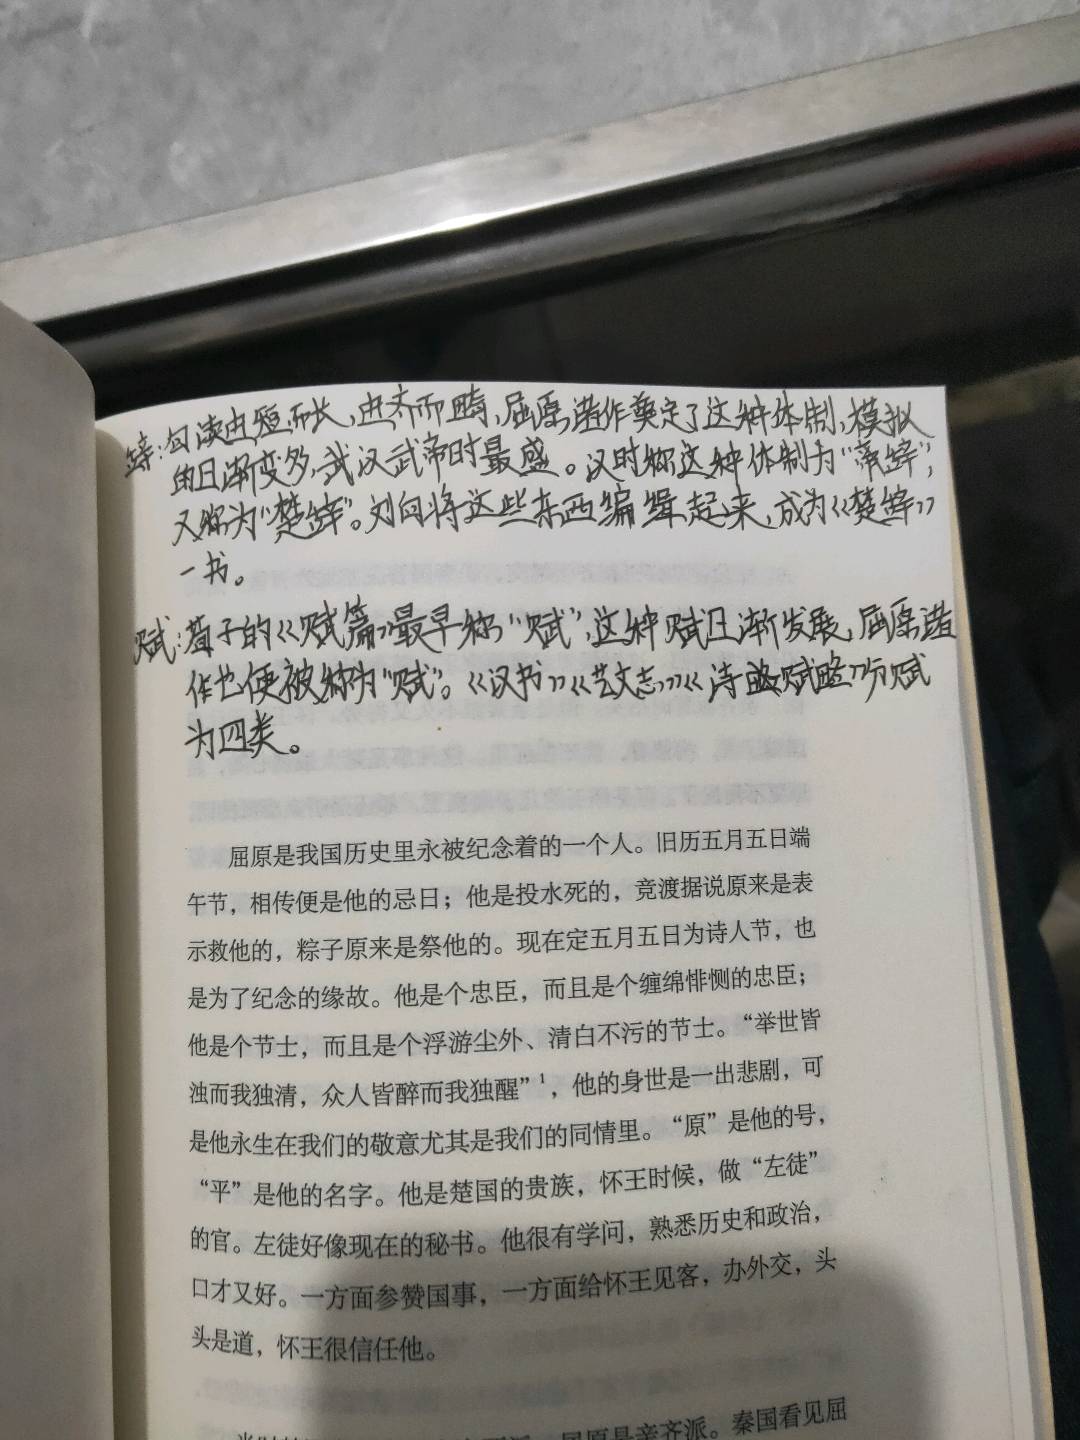 辞：句读由短而长、由齐而畸，屈原诸作奠定了这种体制，模拟
的日渐变多，武汉武帝时最盛。汉时称这种体制为“楚辞”，
又称为“楚辞”。刘向将这些东西编缉起来，成为《楚辞》
一书。
赋：荀子的《赋篇》最早称“赋”，这种赋日渐发展，屈原诸
作也便被称为“赋”。《汉书》《艺文志》《诗赋略》分赋
为四类。
屈原是我国历史里永被纪念着的一个人。旧历五月五日端
午节，相传便是他的忌日；他是投水死的，竞渡据说原来是表
示救他的，粽子原来是祭他的。现在定五月五日为诗人节，也
是为了纪念的缘故。他是个忠臣，而且是个缠绵悱恻的忠臣；
他是个节士，而且是个浮游尘外、清白不污的节士。“举世皆
浊而我独清，众人皆醉而我独醒”1，他的身世是一出悲剧，可
是他永生在我们的敬意尤其是我们的同情里。“原”是他的号，
“平”是他的名字。他是楚国的贵族，怀王时候，做“左徒”
的官。左徒好像现在的秘书。他很有学问，熟悉历史和政治，
口才又好。一方面参赞国事，一方面给怀王见客，办外交，头
头是道，怀王很信任他。
屈原是亲齐派。秦国看见屈